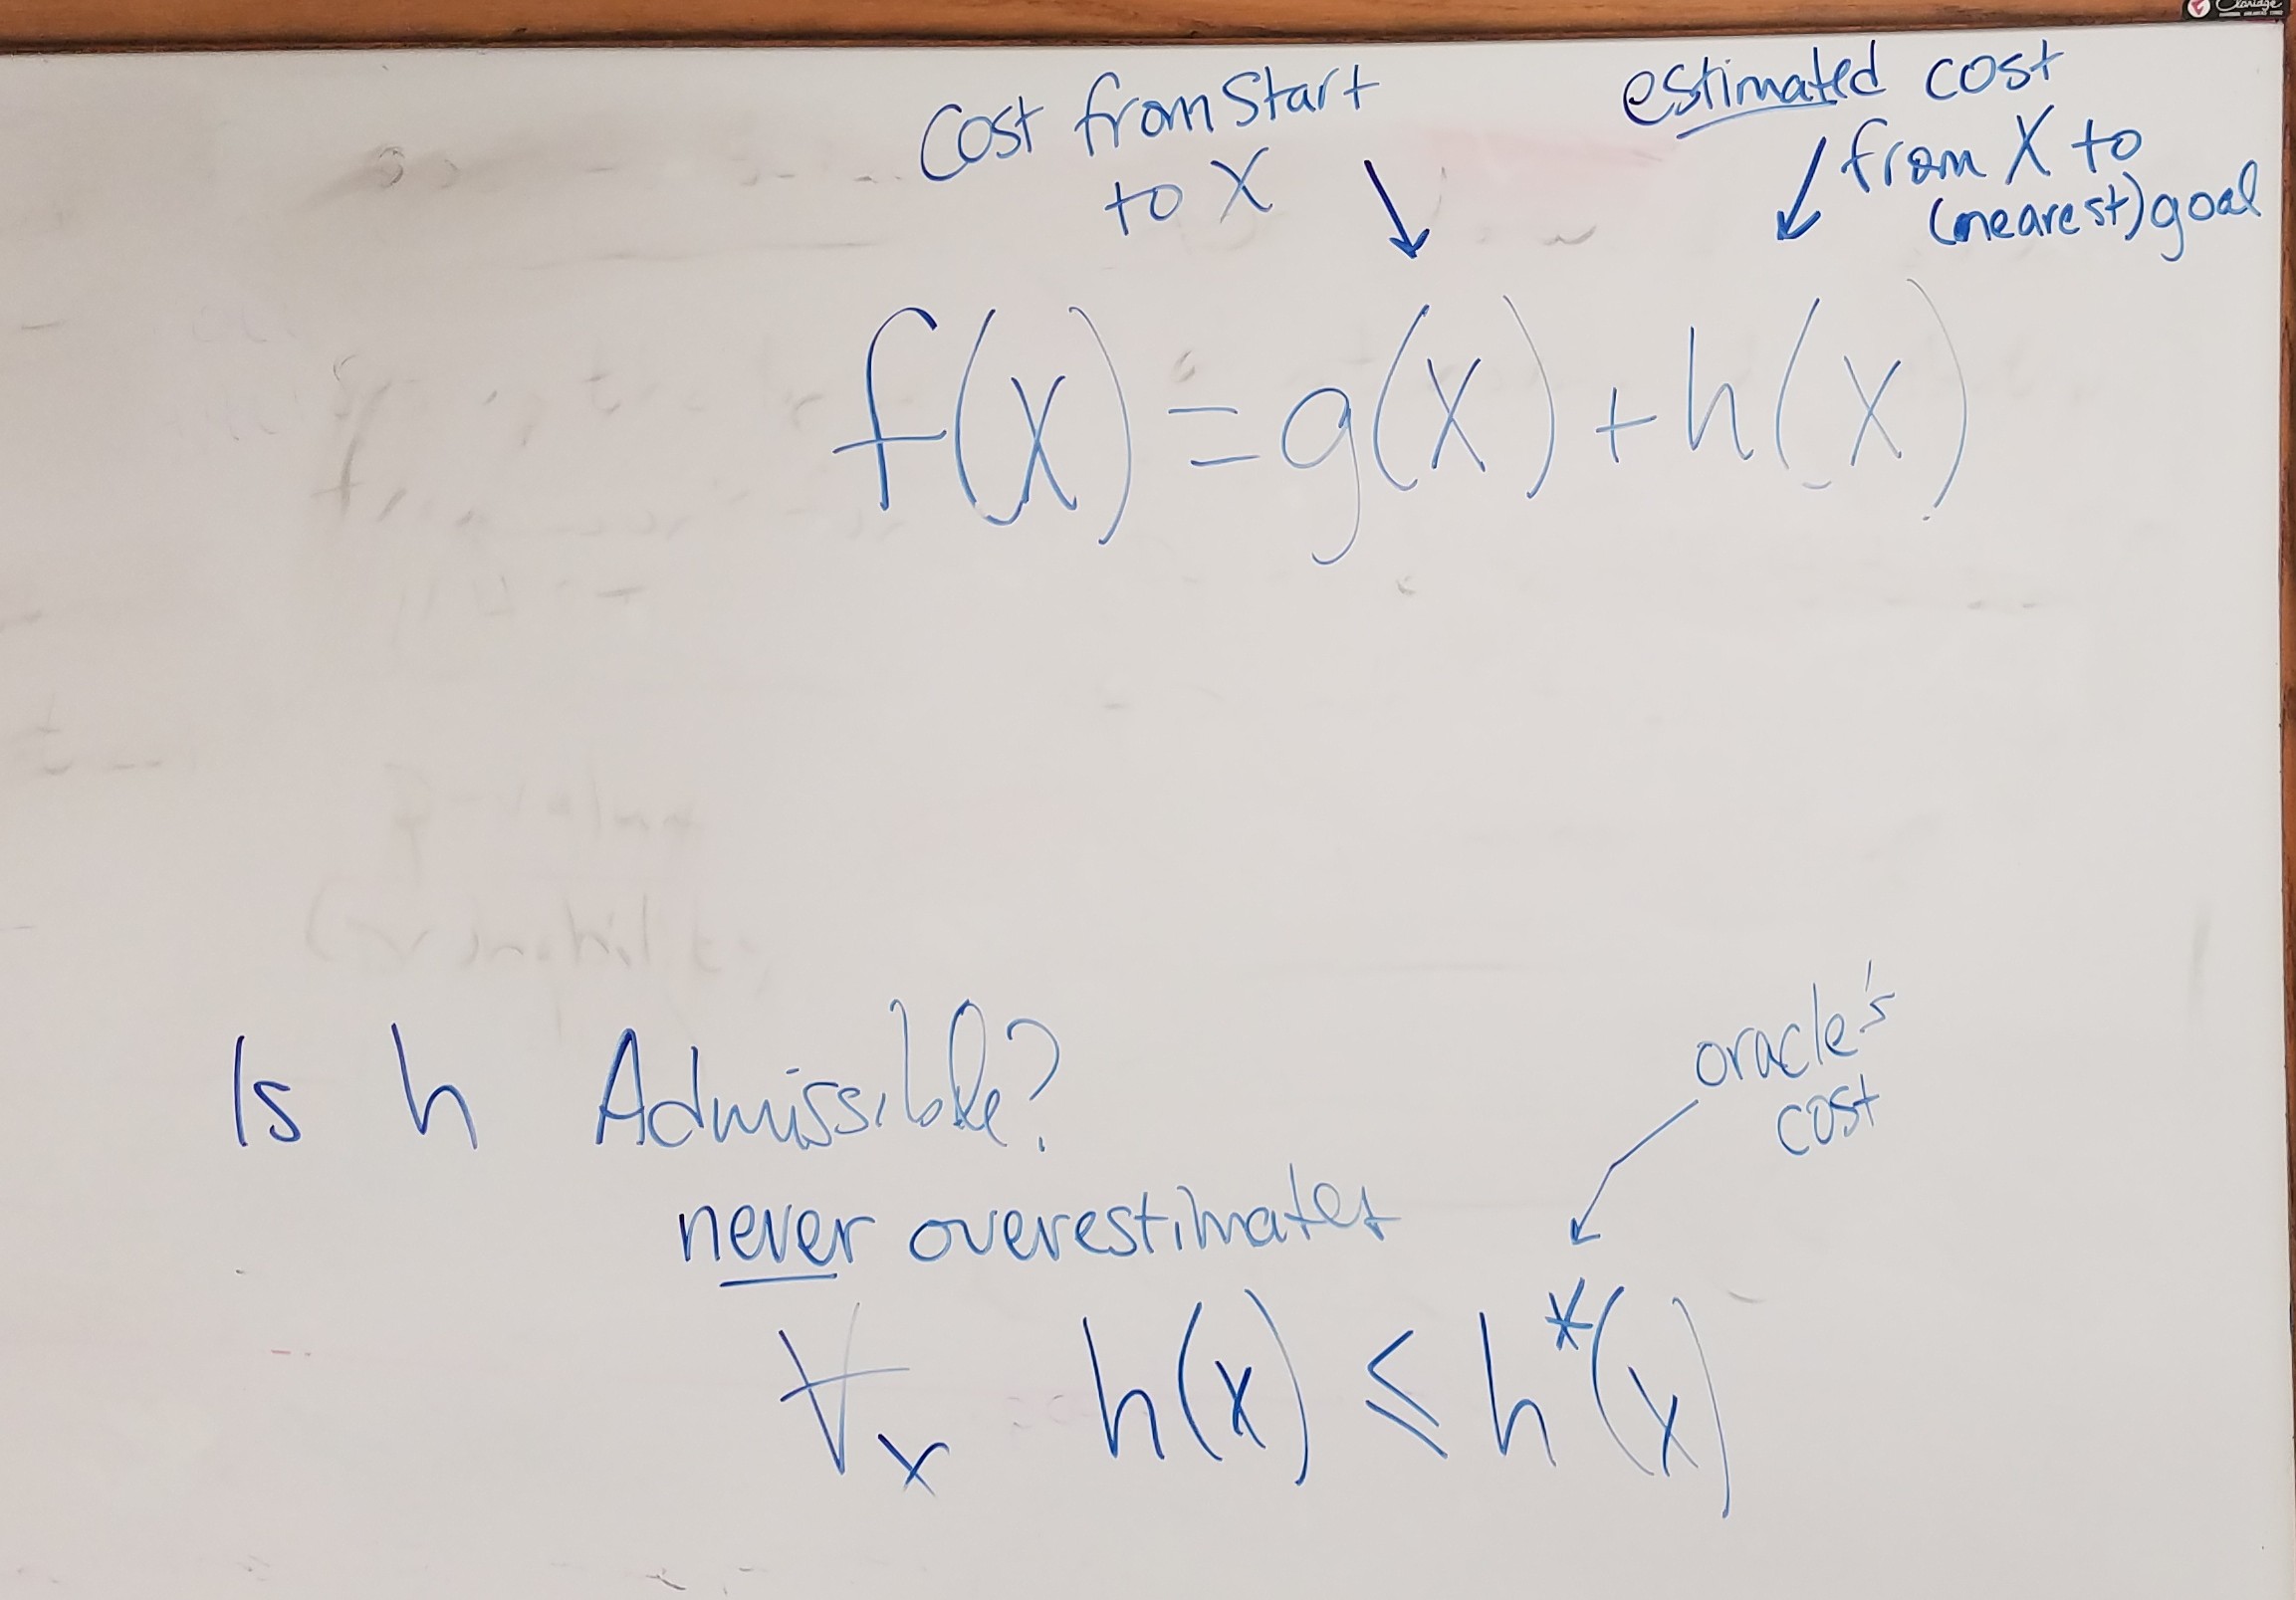 Claridge
Cost from Start
to X
estimated cost
from X to
(nearest) goal
f(x) = g(x) + h(x)
Is h Admissible?
oracle's
cost
never overestimates
∀x h(x) ≤ h*(x)